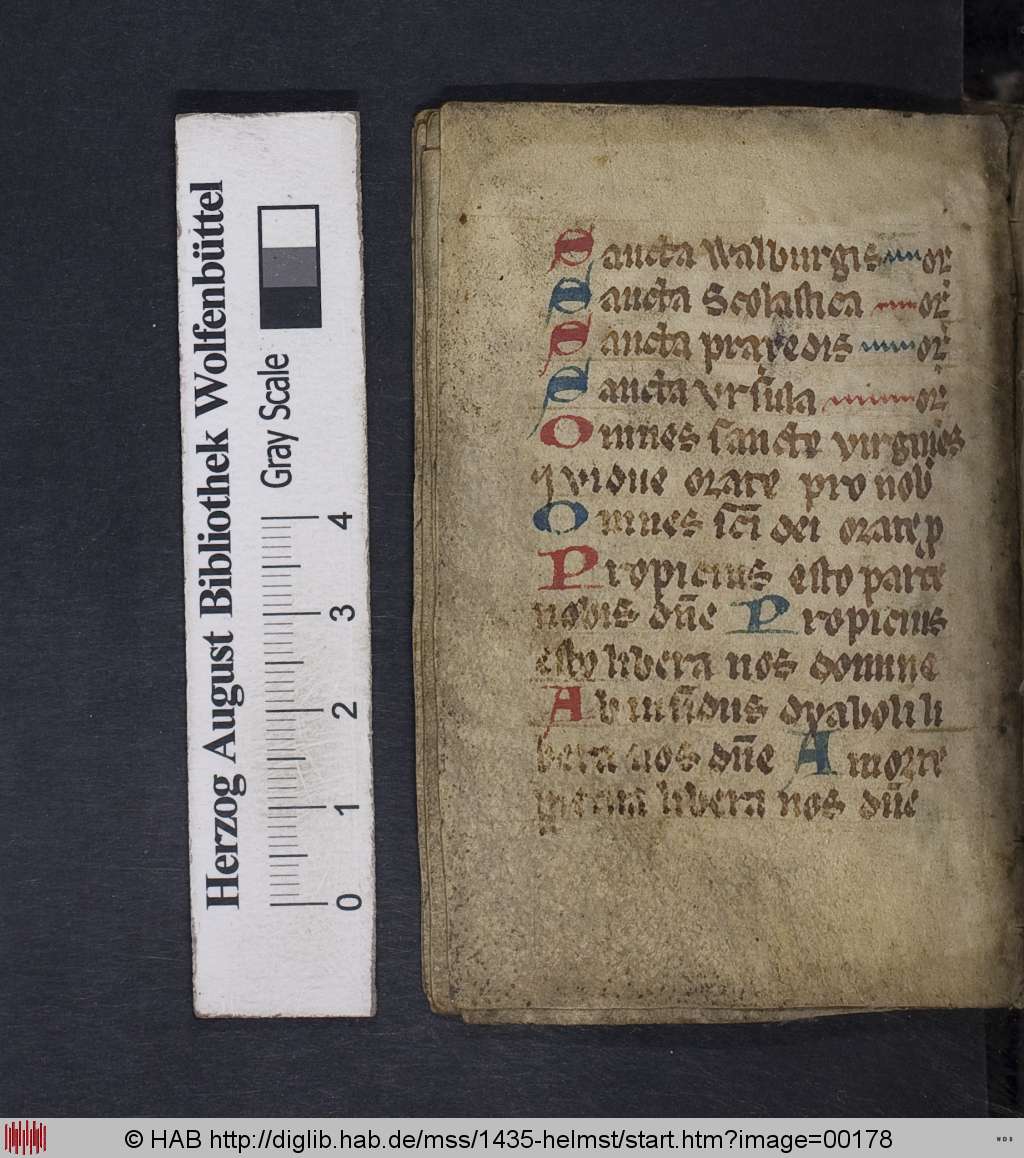 Herzog August Bibliothek Wolfenbüttel
Gray Scale
0 1 2 3 4
Sancta walburgis or
Sancta Scolastica or
Sancta praxedis or
Sancta vrsula or
Omnes sancte virgines
⁊ vidue orate pro nob
Omnes sc̄i dei orate ꝓ
Propicius esto parce
nobis dn̄e Propicius
esto libera nos domine
Ab insidiis dyaboli li
bera nos dn̄e A morte
libera nos dn̄e
© HAB http://diglib.hab.de/mss/1435-helmst/start.htm?image=00178